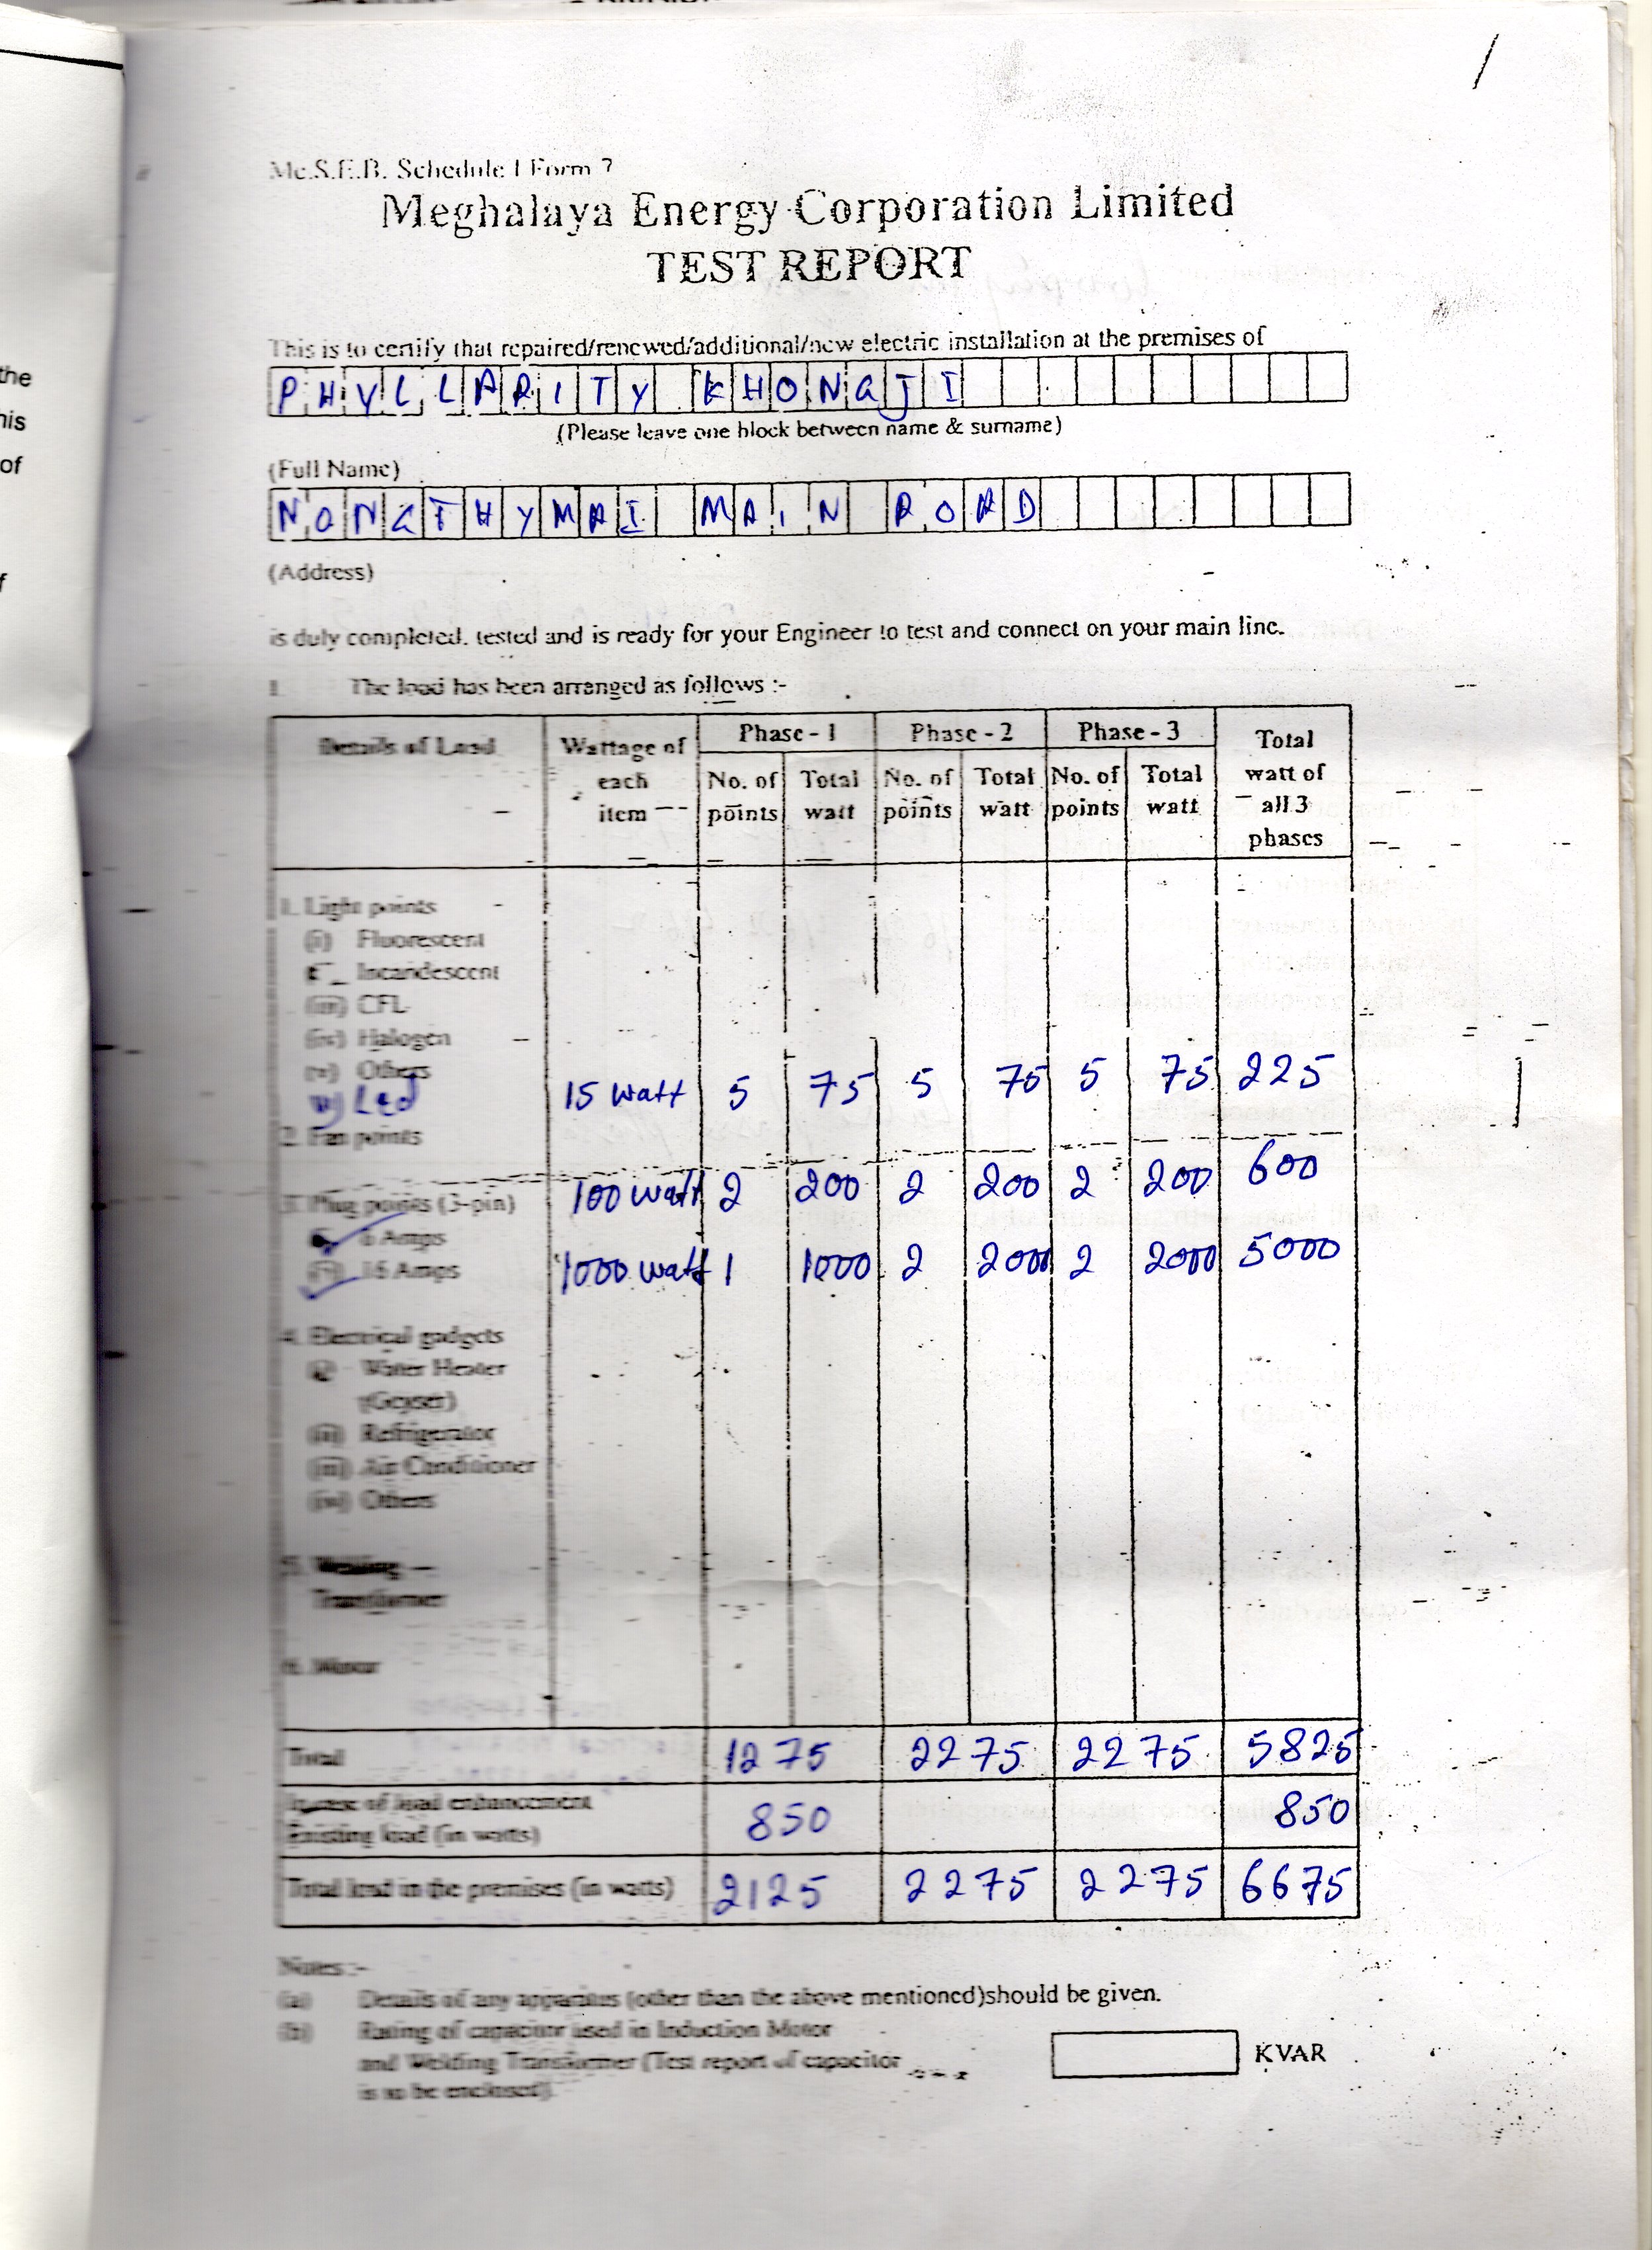 the
his
of
f
Me.S.E.B. Schedule I Form 7
Meghalaya Energy Corporation Limited
TEST REPORT
This is to certify that repaired/renewed/additional/new electric installation at the premises of
PHYLLARITY KHONGJI
(Please leave one block between name & surname)
(Full Name)
NONGTHYMAI MAIN ROAD
(Address)
is duly completed, tested and is ready for your Engineer to test and connect on your main line.
1. The load has been arranged as follows :-
Details of Load Wattage of each item Phase - 1 Phase - 2 Phase - 3 Total watt of all 3 phases
No. of points Total watt No. of points Total watt No. of points Total watt
1. Light points
(i) Fluorescent
Incandescent
(iii) CFL
(iv) Halogen
(v) Others
vi) Led 15 watt 5 75 5 75 5 75 225
2. Fan points
3. Plug points (3-pin) 100 watt 2 200 2 200 2 200 600
6 Amps
16 Amps 1000 watt 1 1000 2 2000 2 2000 5000
4. Electrical gadgets
(i) Water Heater
(Geyser)
(ii) Refrigerator
(iii) Air Conditioner
(iv) Others
5. Welding
Transformer
6. Motor
Total 1275 2275 2275 5825
Incase of load enhancement
Existing load (in watts) 850 850
Total load in the premises (in watts) 2125 2275 2275 6675
Notes :-
(a) Details of any apparatus (other than the above mentioned)should be given.
(b) Rating of capacitor used in Induction Motor
and Welding Transformer (Test report of capacitor
is to be enclosed). KVAR